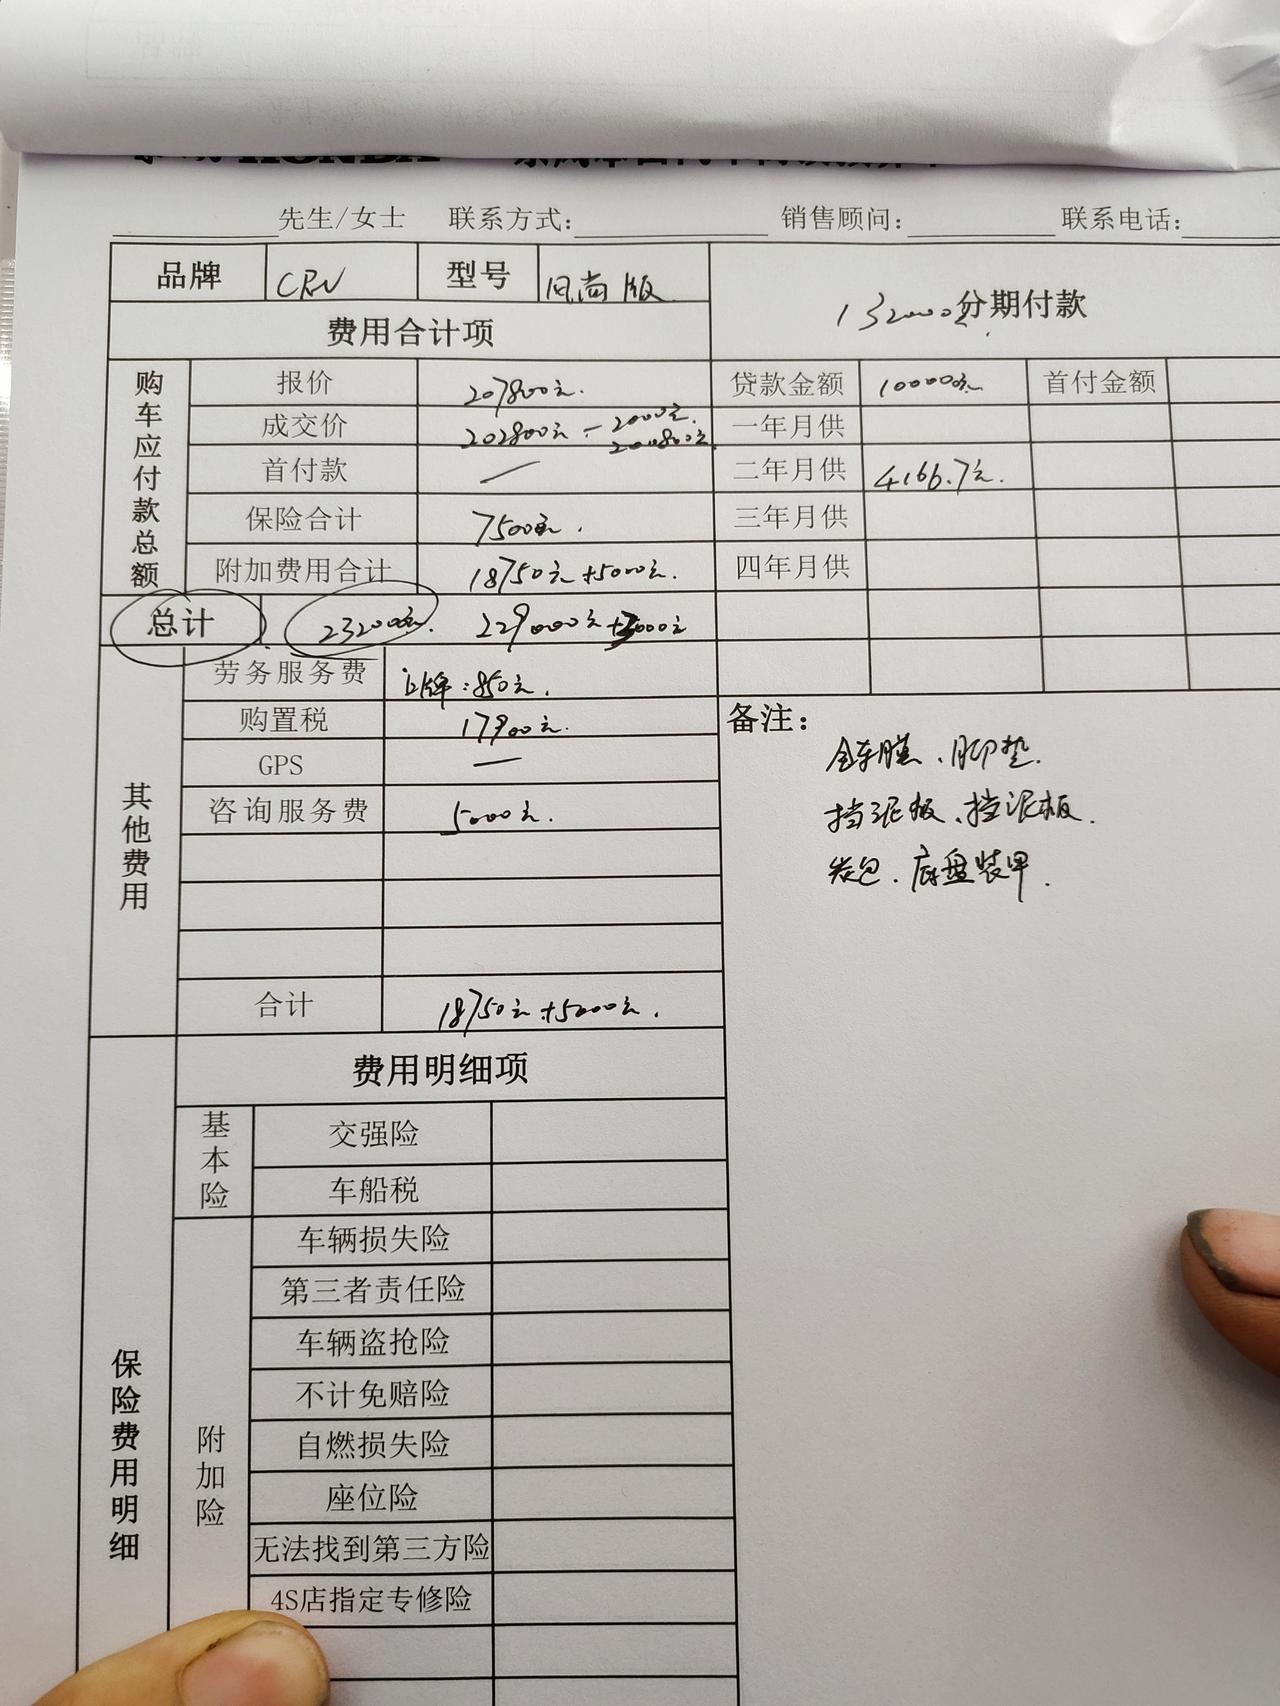 HONDA
先生/女士 联系方式： 销售顾问： 联系电话：
品牌 CRV 型号 风尚版 132000元 分期付款
费用合计项
购车应付款总额
报价 207800元. 贷款金额 100000元 首付金额
成交价 202800元 - 2000元. 200800元 一年月供
首付款 — 二年月供 4166.7元.
保险合计 7500元. 三年月供
附加费用合计 18750元+5000元. 四年月供
总计 232000元. 229000元+3000元
其他费用
劳务服务费 上牌:850元.
购置税 17900元.
GPS —
咨询服务费 5000元.
合计 18750元+5000元.
备注：
全车膜、脚垫.
挡泥板、挡泥板.
底盘装甲.
保险费用明细
费用明细项
基本险
交强险
车船税
附加险
车辆损失险
第三者责任险
车辆盗抢险
不计免赔险
自燃损失险
座位险
无法找到第三方险
4S店指定专修险